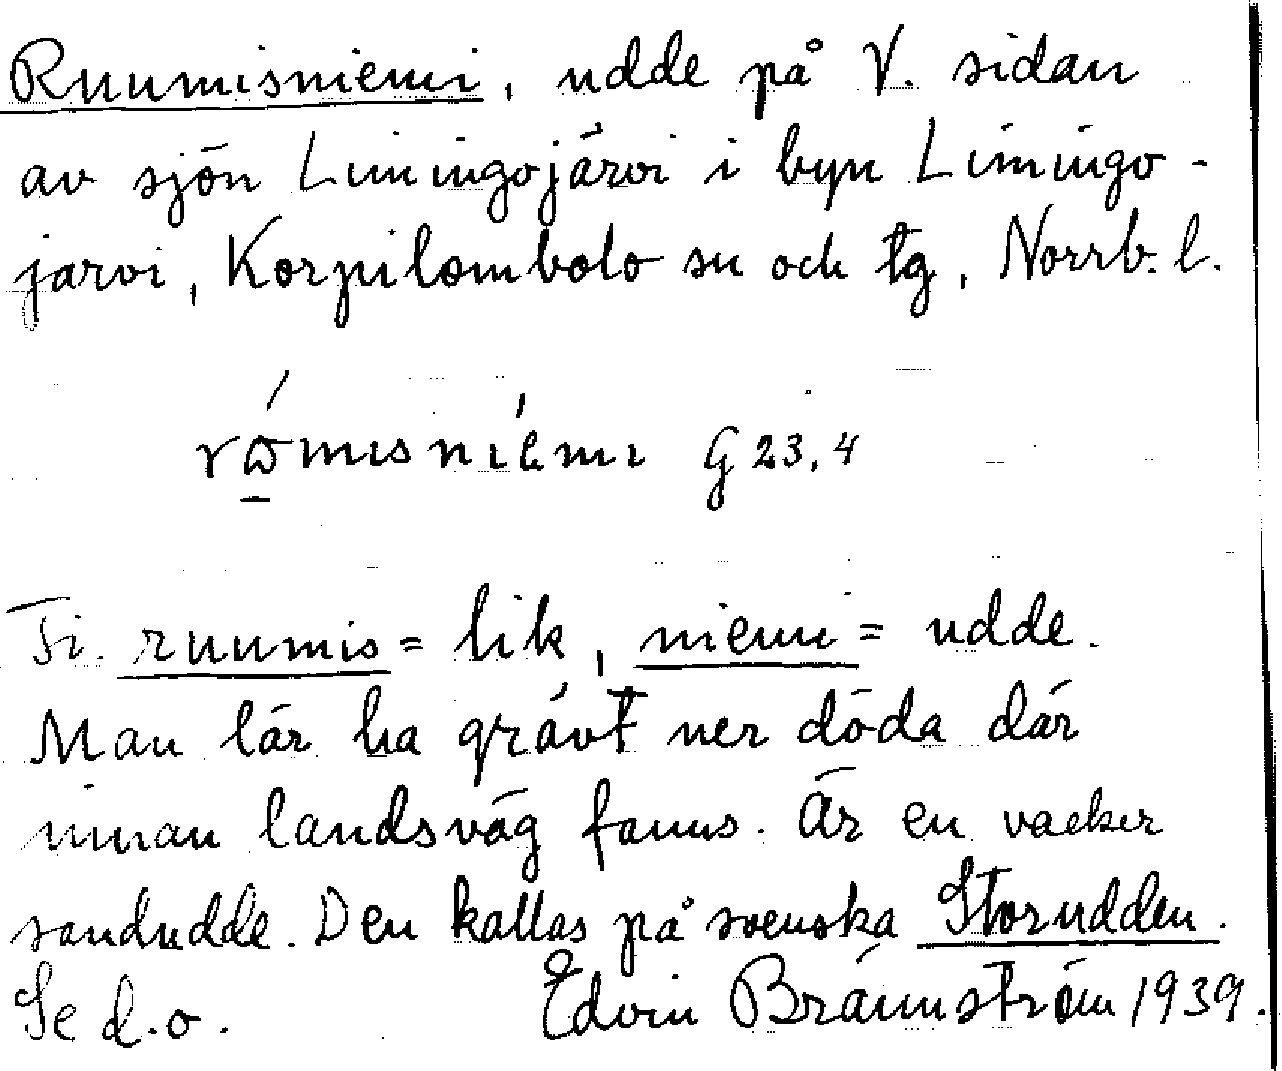 Ruumisniemi, udde på V. sidan
av sjön Limingojärvi i byn Limingo-
järvi, Korpilombolo sn och tg, Norrb. l.
G 23,4
Fi. ruumis = lik, niemi = udde.
Man lär ha grävt ner döda där
innan landsväg fanns. Är en vacker
sandudde. Den kallas på svenska Storudden.
Se d.o. Edvin Brännström 1939.